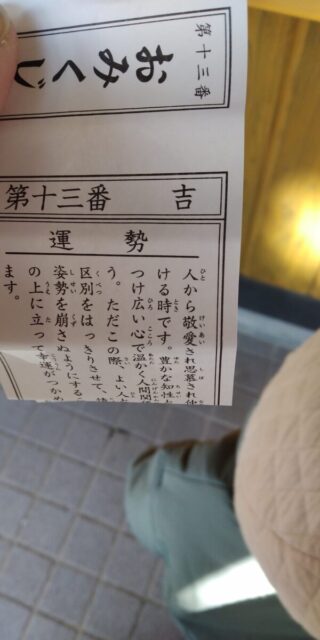 第十三番
おみくじ
第十三番 吉
運勢
人から敬愛され思慕され
ける時です。豊かな知性
つけ広い心で温かく人間関
う。ただこの際、よい人
区別をはっきりさせて、
姿勢を崩さぬようにする
の上に立って幸運がつかめ
ます。